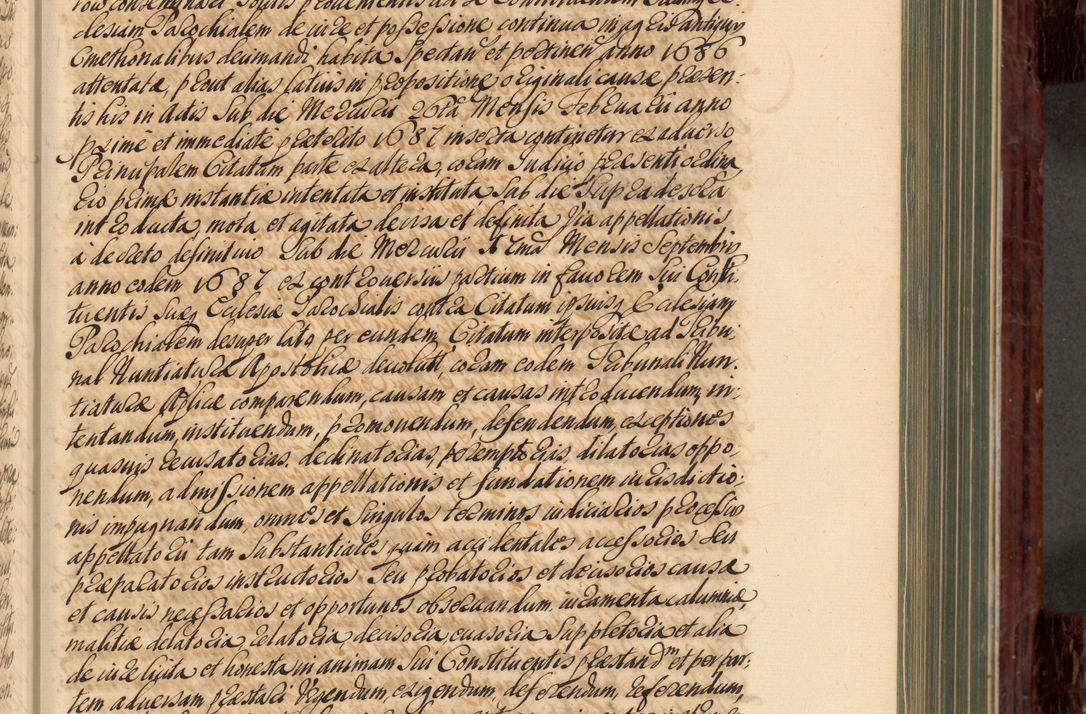 clesiam Parochialem de iure et possessione continua in agris antiquis
Cmethonalibus deumandi habita Spectan et pertinen anno 1686
attentatæ, prout alias latius in propositione originali causæ præsen-
tis his in Actis Sub die Mercurii 26ta Mensis Februarii anno
proximè et immediatè præterito 1687 inserta continetur ex adverso
Principalem Citatam parte ex altera, coram Iudicio præsenti ordina
rio primæ instantiæ intentata et instituta Sub die Supradescripta
introducta, mota et agitata decisa et definita Via appellationis
à decreto definitivo Sub die Mercurii Xma Mensis Septembris
anno eodem 1687 ex controversiis partium in favorem Sui Consti-
tuentis Suæq Ecclesiæ Parochialis contra Citatum ipsiusq Ecclesiam
Parochialem desuper lato, per eundem Citatum interpositæ ad Tribu-
nal Nuntiaturæ Apostolicæ devoluti, coram eodem Tribunali Nun-
tiaturæ Aplicæ comparendum, causam et causas introducendum, in-
tentandum, instituendum, promovendum, defendendum, exceptiones
quasvis recusatorias, declinatorias, peremptorias, dilatorias oppo-
nendum, admissionem appellationis et fundationem iurisdictio-
nis impugnandum, omnes et Singulos terminos iudiciarios processus
appellatorii tam Substantiales quàm accidentales accessorios Seu
præparatorios instructorios, Seu probatorios et decisorios causæ
et causis necessarios et opportunos observandum, iuramenta calumniæ,
malitiæ delatoria, relatoria, decisoria, evasoria, Suppletoria et alia
de iure licita et honesta in animam Sui Constituentis præstandm et per par-
tem adversam præstari Vigendum, exigendum, deferendum, referendum,